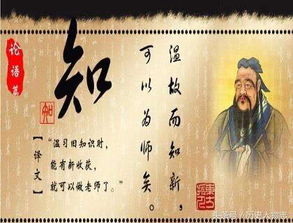 论语篇
知
温故而知新，
可以为师矣。
【译文】
“温习旧知识时，
能有新收获，
就可以做老师了。”